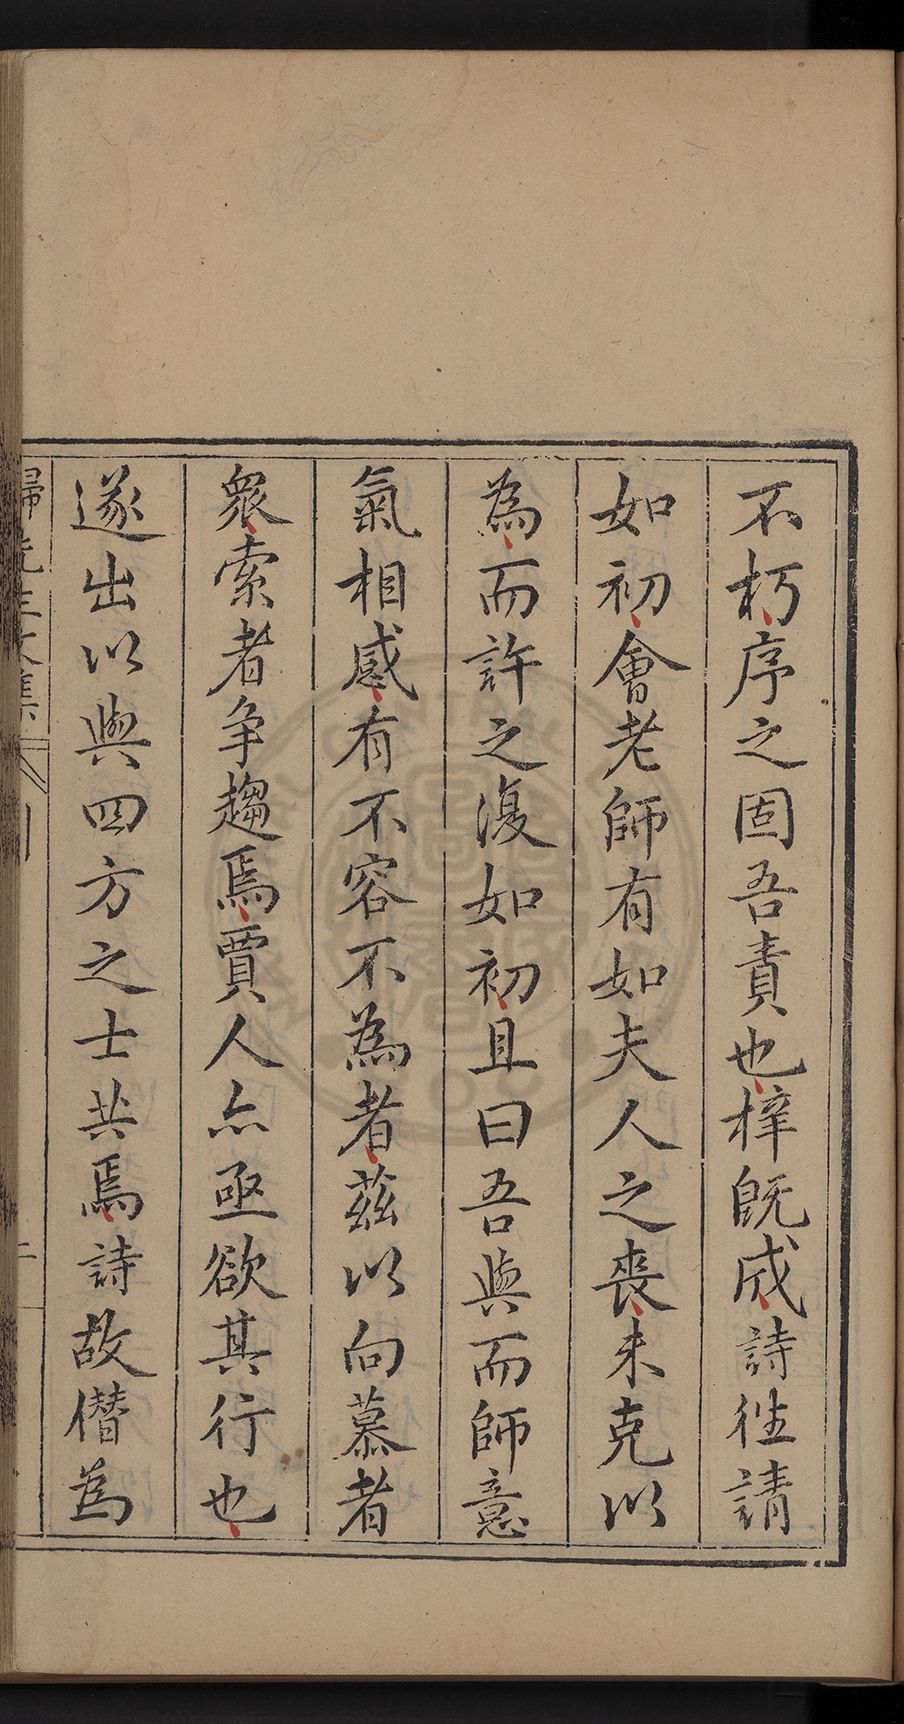 不朽序之固吾責也梓既成詩徃請
如初會老師有如夫人之喪未克以
為而許之復如初且曰吾與而師意
氣相感有不容不為者茲以向慕者
衆索者争趨焉賈人亦亟欲其行也
遂出以與四方之士共焉詩故僭為
歸先生文集